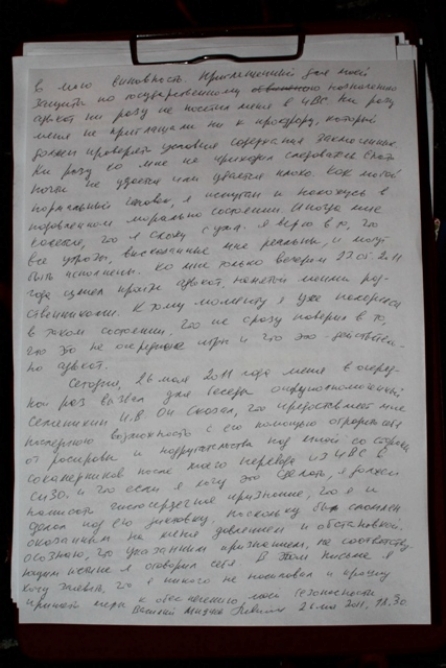 в мою виновность. Приглашенный для моей
защиты по государственному назначению
адвокат ни разу не посетил меня в ИВС. Ни разу
меня не приглашали ни к прокурору, который
должен проверять условия содержания заключенных
Ни разу ко мне не приходил следователь. Спать
ночью не удается или удается плохо. Как любой
нормальный человек, я испуган и нахожусь в
подавленном моральном состоянии. Иногда мне
кажется, что я схожу с ума. Я верю в то, что
все угрозы, высказанные мне реальны, и могут
быть исполнены. Ко мне только вечером 2011
года сумел пройти адвокат, нанятый моими род-
ственниками. К тому моменту я уже находился
в таком состоянии, что не сразу поверил в то,
что это не очередная игра и что это действитель-
но адвокат.
Сегодня, 26 мая 2011 года меня в очеред-
ной раз вызвал для беседы оперуполномоченный
И.В. Он сказал, что предоставляет мне
последнюю возможность с его помощью оградиться
от расправы и надругательства над мной со стороны
сокамерников после моего перевода из ИВС в
СИЗО. и что если я хочу это сделать, я должен
написать чистосердечное признание, что я и
делал под его диктовку, поскольку был сломлен
оказанным на меня давлением и обстановкой.
осознаю, что указанным признанием, не соответству-
ющим истине я оговорил себя. В этом письме я
хочу заявить, что я никого не насиловал и прошу
принять меры к обеспечению моей безопасности
Василий 26 мая 2011, 18.30